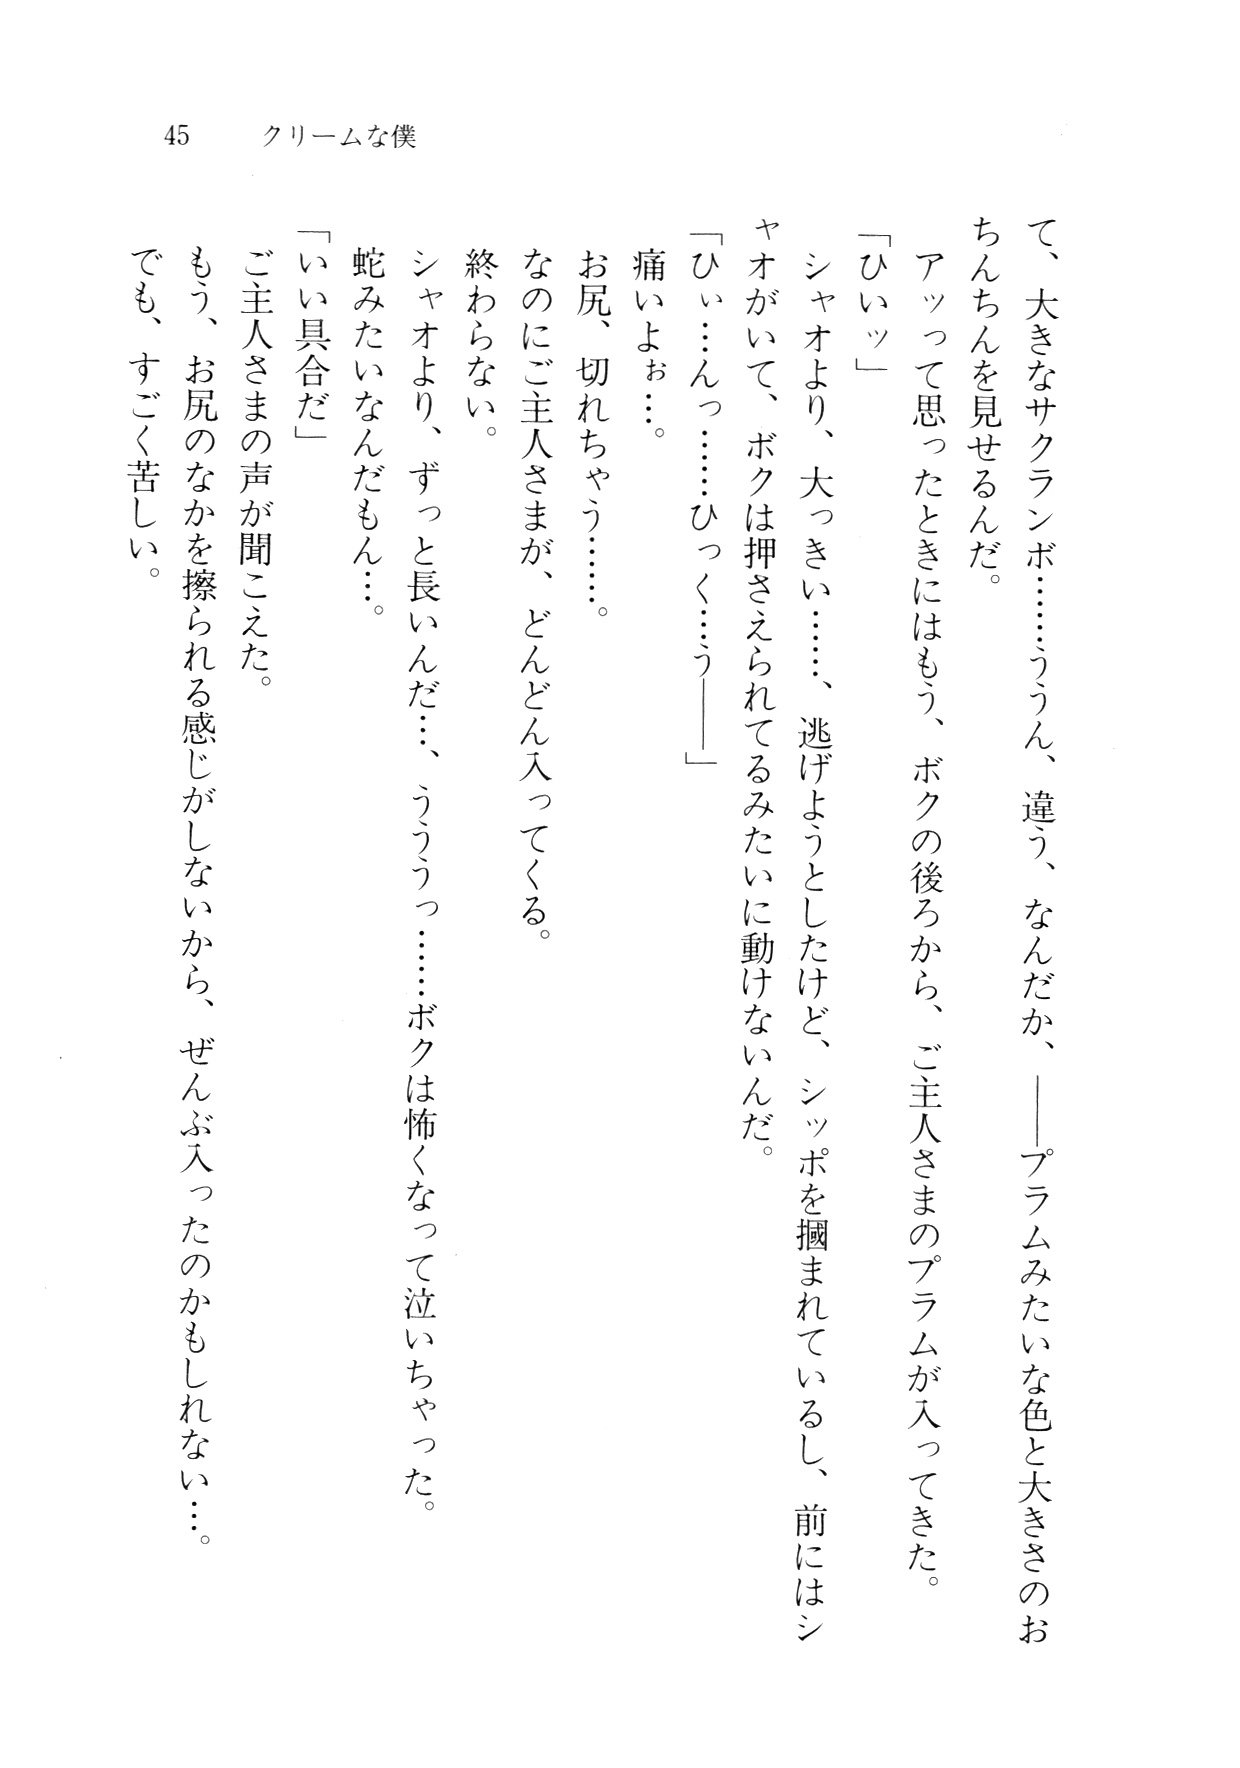 45 クリームな僕
て、大きなサクランボ……ううん、違う、なんだか、――プラムみたいな色と大きさのお
ちんちんを見せるんだ。
アッって思ったときにはもう、ボクの後ろから、ご主人さまのプラムが入ってきた。
「ひいッ」
シャオより、大っきい……、逃げようとしたけど、シッポを摑まれているし、前にはシ
ャオがいて、ボクは押さえられてるみたいに動けないんだ。
「ひぃ…んっ……ひっく…う――」
痛いよぉ…。
お尻、切れちゃう……。
なのにご主人さまが、どんどん入ってくる。
終わらない。
シャオより、ずっと長いんだ…、うううっ……ボクは怖くなって泣いちゃった。
蛇みたいなんだもん…。
「いい具合だ」
ご主人さまの声が聞こえた。
もう、お尻のなかを擦られる感じがしないから、ぜんぶ入ったのかもしれない…。
でも、すごく苦しい。